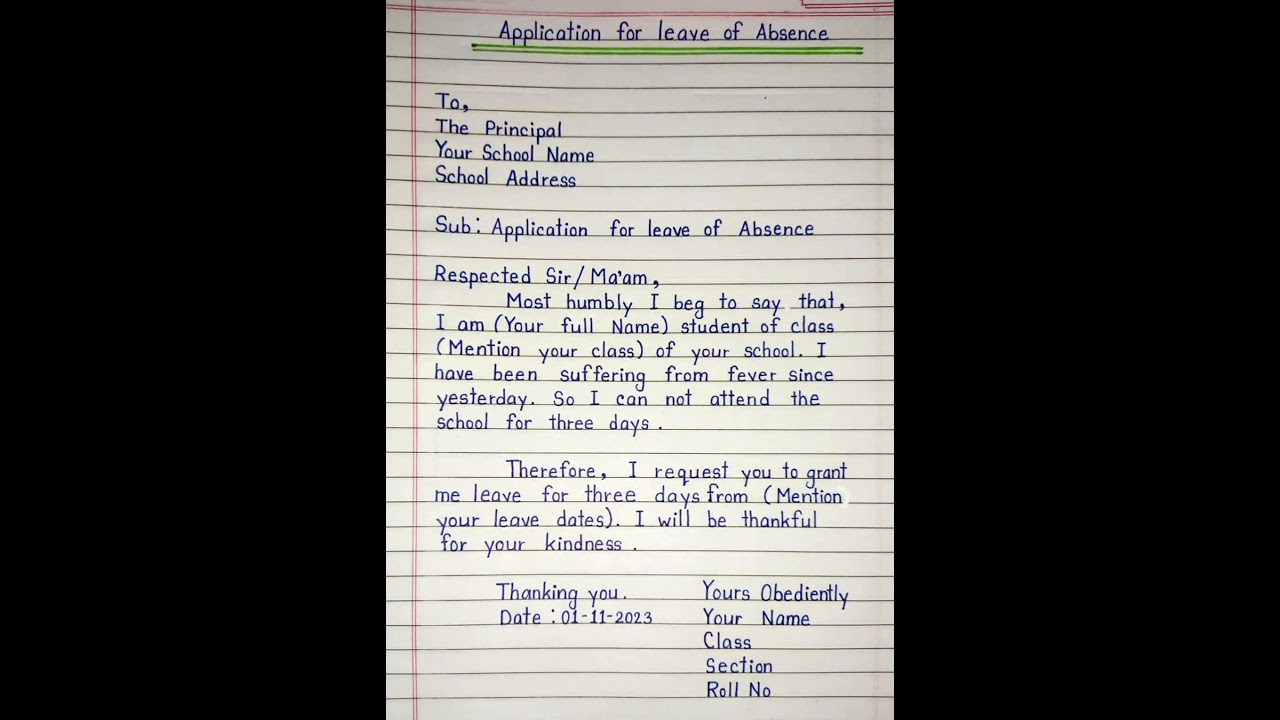 Application for leave of Absence
To,
The Principal
Your School Name
School Address
Sub: Application for leave of Absence
Respected Sir/Ma'am,
Most humbly I beg to say that,
I am (Your full Name) student of class
(Mention your class) of your school. I
have been suffering from fever since
yesterday. So I can not attend the
school for three days.
Therefore, I request you to grant
me leave for three days from (Mention
your leave dates). I will be thankful
for your kindness.
Thanking you. Yours Obediently
Date : 01-11-2023 Your Name
Class
Section
Roll No